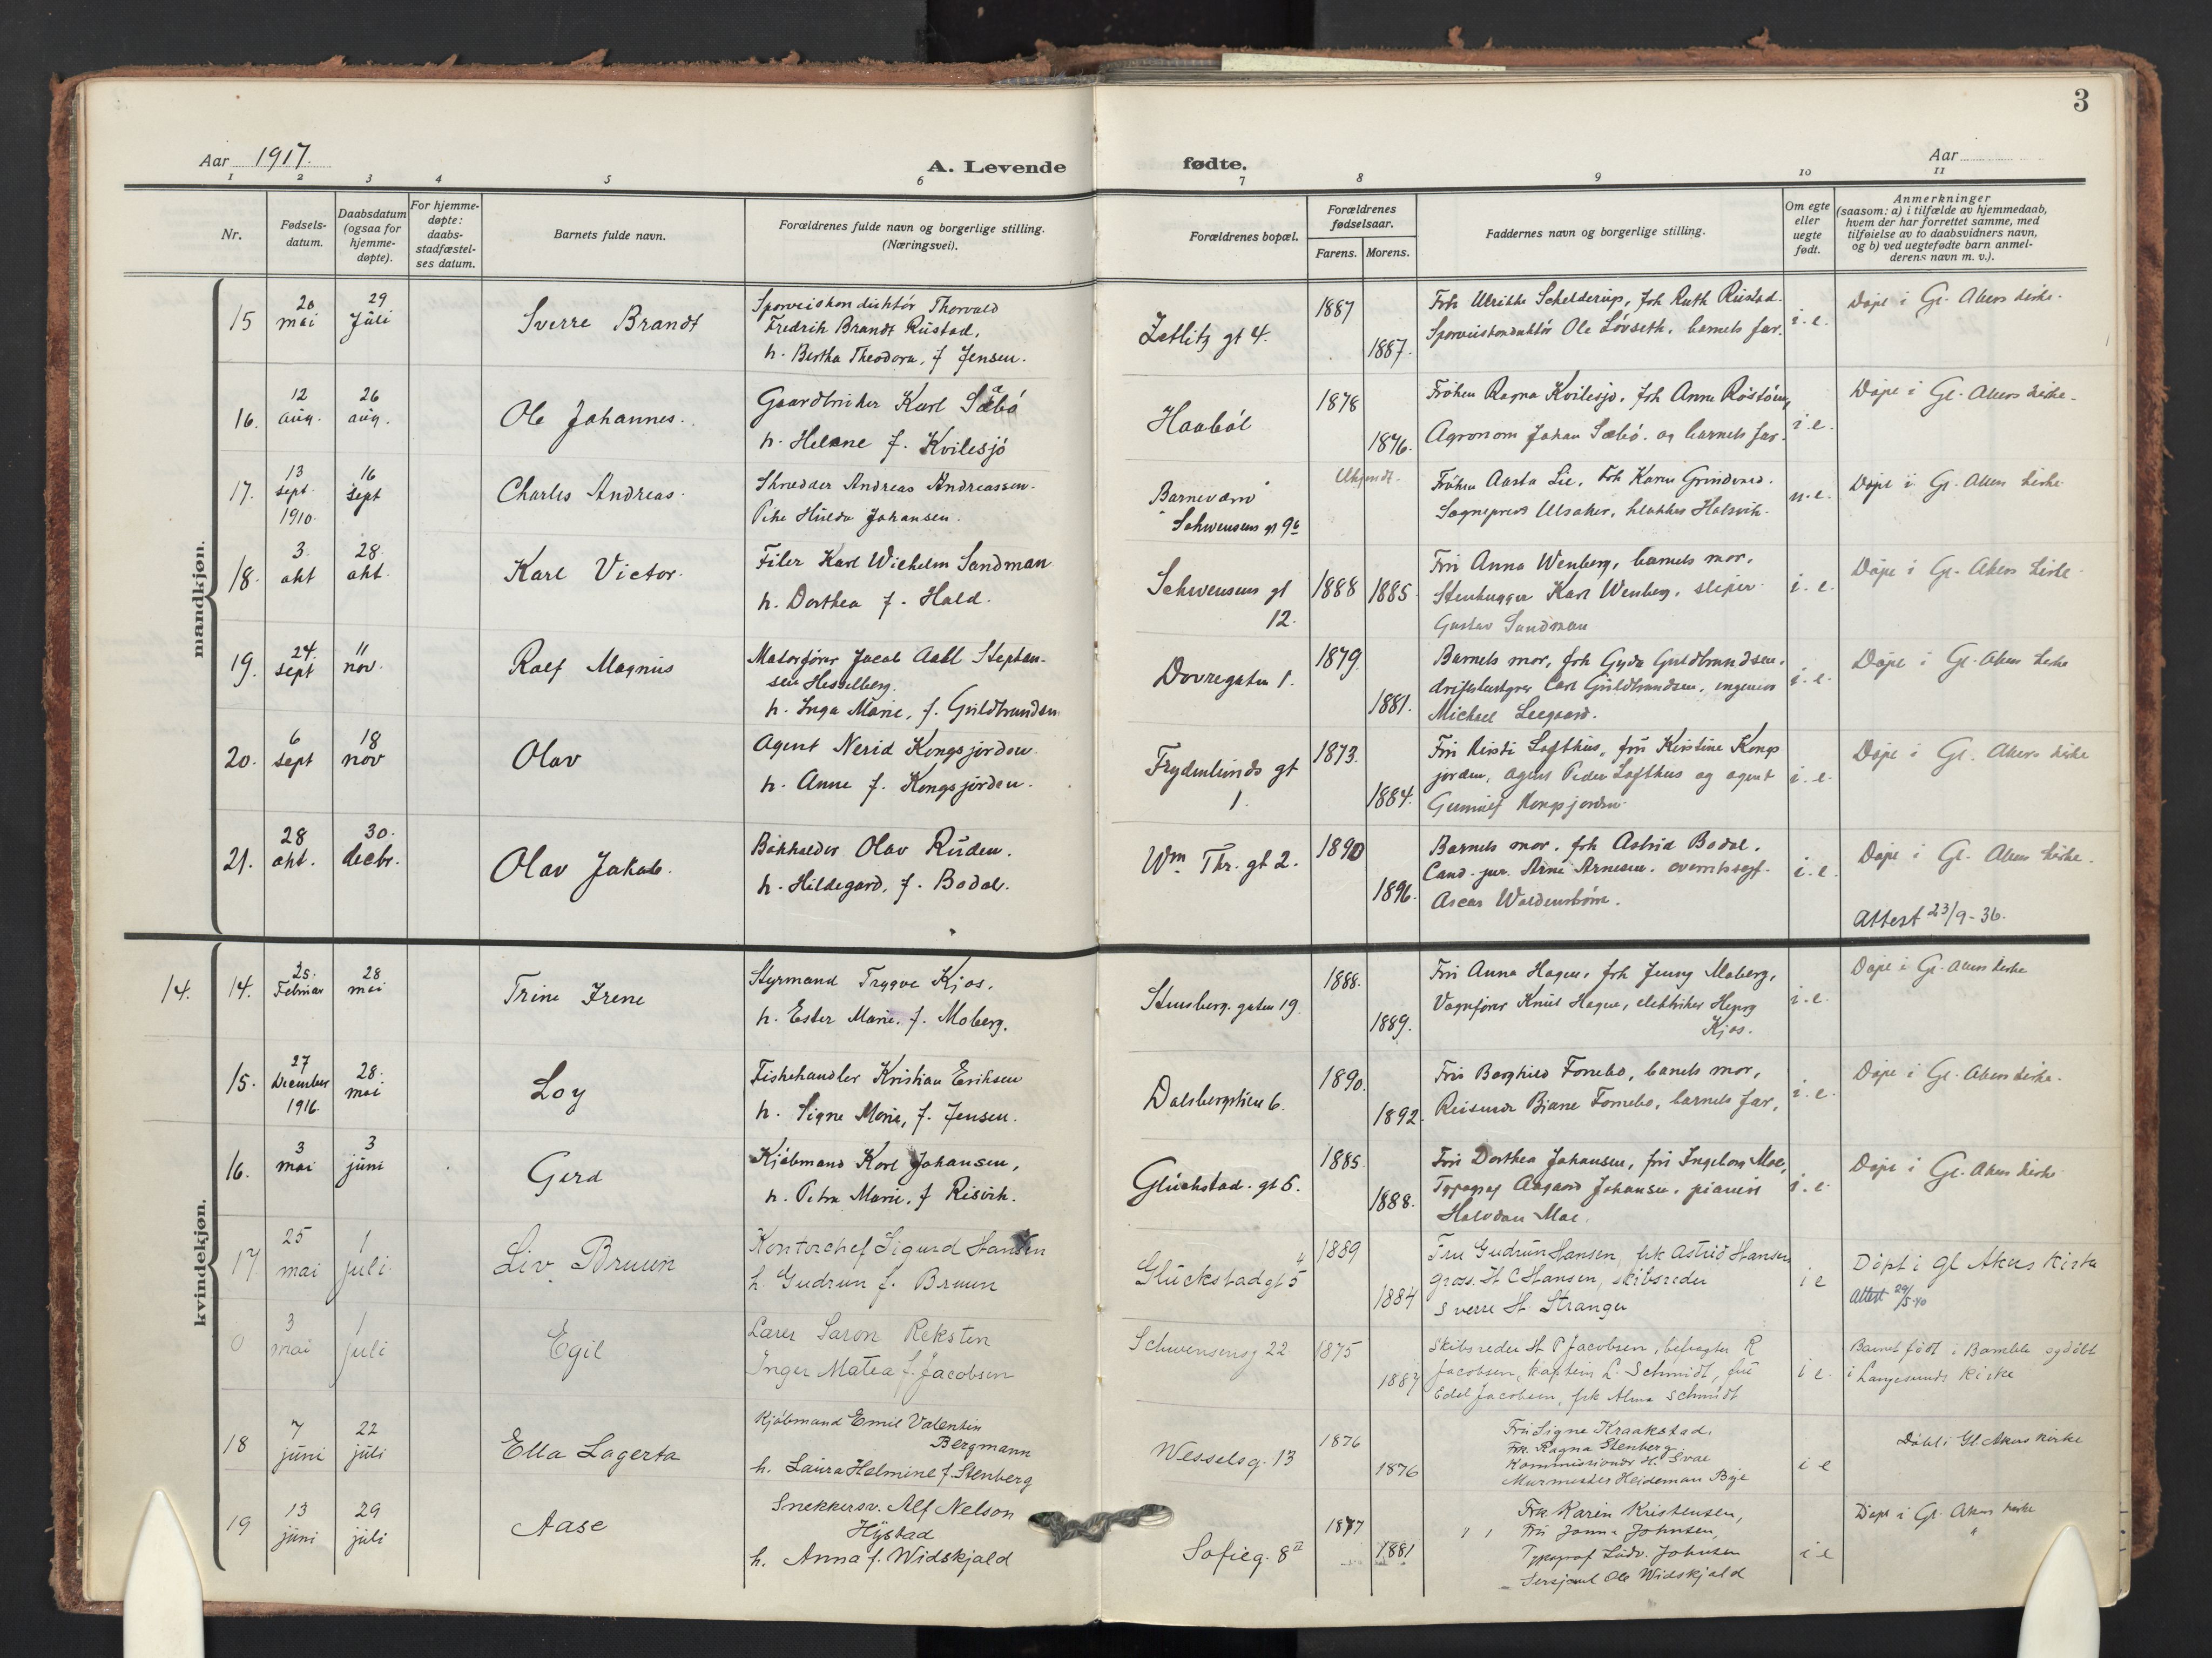 3
Aar 1917.
A. Levende fødte.
Aar
1 2 3 4 5 6 7 8 9 10 11
Nr.
Fødsels-
datum.
Daabsdatum
(ogsaa for
hjemme-
døpte).
For hjemme-
døpte:
daabs-
stadfæstel-
ses datum.
Barnets fulde navn.
Forældrenes fulde navn og borgerlige stilling.
(Næringsvei).
Forældrenes bopæl.
Forældrenes
fødselsaar.
Farens. Morens.
Faddernes navn og borgerlige stilling.
Om egte
eller
uegte
født.
Anmerkninger
(saasom: a) i tilfælde av hjemmedaab,
hvem der har forrettet samme, med
tilføielse av to daabsvidners navn,
og b) ved uegtefødte barn anmel-
derens navn m. v.).
mandkjøn.
15
20
mai
29
Juli
Sverre Brandt
Sporveiskonduktør Thorvald
Fredrik Brandt Rustad,
h. Bertha Theodora, f Jensen.
Zetlitz gt 4.
1887
1887.
Frk Ulrikke Schelderup, frk Ruth Rustad.
Sporveiskonduktør Ole Løvseth, barnets far.
i. e.
Døpt i Gl. Akers kirke.
16.
12
aug.
26
aug.
Ole Johannes.
Gaardbruker Karl Sæbø
h. Helene f. Kvilesjø
Haabøl
1878
1876.
Frøken Ragna Kvilesjø, frk Anna
Agronom Johan Sæbø. og barnets far.
i e.
Døpt i Gl. Akers kirke.
17.
13
sept.
1910.
16
sept
Charles Andreas.
Skrædder Andreas Andreassen.
Pike Hulda Johansen.
Barneværn
Schwensens gt 9b
Ukjendt.
Frøken Aasta Lie, frk Karen
Sogneprest Ulsaker, klokker Halsvik.
u. e.
Døpt i Gl. Akers kirke
18.
3.
okt
28.
okt.
Karl Victor.
Filer Karl Wilhelm Sandman
h. Dorthea f. Hald.
Schwensens gt
12.
1888 1885
Fru Anna Wenberg, barnets mor,
Stenhugger Karl Wenberg, sliper
Gustav Sandman
i. e.
Døpt i Gl. Akers kirke
19.
24.
sept
11
nov.
Ralf Magnus
Motorfører Jacob Aall Stephan-
sen Hesselberg.
h. Inga Marie, f. Guldbrandsen
Dovregaten 1.
1879.
1881.
Barnets mor, frk Gyda Guldbrandsen.
driftsbestyrer Carl Guldbrandsen, ingeniør
Michael Leegaard.
i. e.
Døpt i Gl. Akers kirke
20.
6
sept
18
nov
Olav
Agent Nerid Kongsjorden
h. Anne f. Kongsjorden.
Frydenlunds gt
1.
1873.
1884.
Fru Kirsti Lofthus, fru Kirstine Kongs
jorden, agent Peder Lofthus og agent
Gunnulf Kongsjorden.
i. e.
Døpt i Gl. Akers kirke
21.
28
okt.
30.
decbr.
Olav Jakob.
Bokholder Olav Ruden.
h. Hildegard, f. Bodal.
Wm Thr. gt 2.
1890
1896.
Barnets mor. frk Astrid Bodal.
Cand. jur. Arne Arnesen. overretssagf.
Oscar
i. e.
Døpt i Gl. Akers kirke.
Attest 23/9-36.
kvindekjøn.
14.
14.
25.
Februar
28
mai
Trine Irene
Styrmand Trygve Kjos.
h. Ester Marie. f. Moberg.
Stensberg. gaten 19
1888.
1889.
Fru Anna Hagen, frk Jenny Moberg,
Vognfører Knut Hagen, elektriker Henry
Kjos.
i. e.
Døpt i Gl. Akers kirke
15.
27
December
1916.
28.
mai
Loy
Fiskehandler Kristian Eriksen
h. Signe Marie, f. Jensen.
Dalsbergstien 6.
1890.
1892.
Fru Borghild Fornebo, barnets mor,
Reisende Bjarne Fornebo, barnets far,
i. e.
Døpt i Gl. Akers kirke.
16.
3
mai
3
juni
Gerd
Kjøbmand Karl Johansen,
h. Petra Marie, f Risvik.
Glückstad. gt 5.
1885.
1888.
Fru Dorthea Johansen, fru Ingeborg Moe,
Typograf Aagaard Johansen, pianist
Halvdan Moe.
i. e.
Døpt i Gl. Akers kirke
17
25
mai
1
juli
Liv Bruun
Kontorchef Sigurd Hansen
h. Gudrun f. Bruun
Glückstad gt 5 4
1889
1884
Fru Gudrun Hansen, frk Astrid Hansen
Gros. H C Hansen, skibsreder
Sverre H. Stranger
i e
Døpt i Gl Akers Kirke
Attest
0
3
mai
1
juli
Egil
Lærer Saron Reksten
Inger Matea f. Jacobsen
Schwensensg 22
1875
1887
Skibsreder H P Jacobsen, befragter R
Jacobsen, kaptein L. Schmidt, fru
Edel Jacobsen, frk Alma Schmidt
i e.
Barnet født i Bamble og døbt
i Langesunds Kirke
18
7
juni
22
juli
Ella Lagerta
Kjøbmand Emil Valentin
Bergmann
h. Laura Helmine f. Stenberg
Wesselsg. 13
1876
1876
Fru Signe Kraakstad,
Frk. Ragna Stenberg.
Kommissionær H. Svae
Murmester Heideman Bye
i e
Døbt i Gl. Akers kirke
19
13
juni
29
juli
Aase
Snekkersv. Alf Nelson
Hystad
h. Anna f. Widskjald
Sofieg. 8 II
1877
1881
Frk Karin Kristensen,
Fru Johnsen,
Typograf Ludv. Johnsen
Sersjant Ole Widskjald
i e
Døpt i Gl. Akers kirke